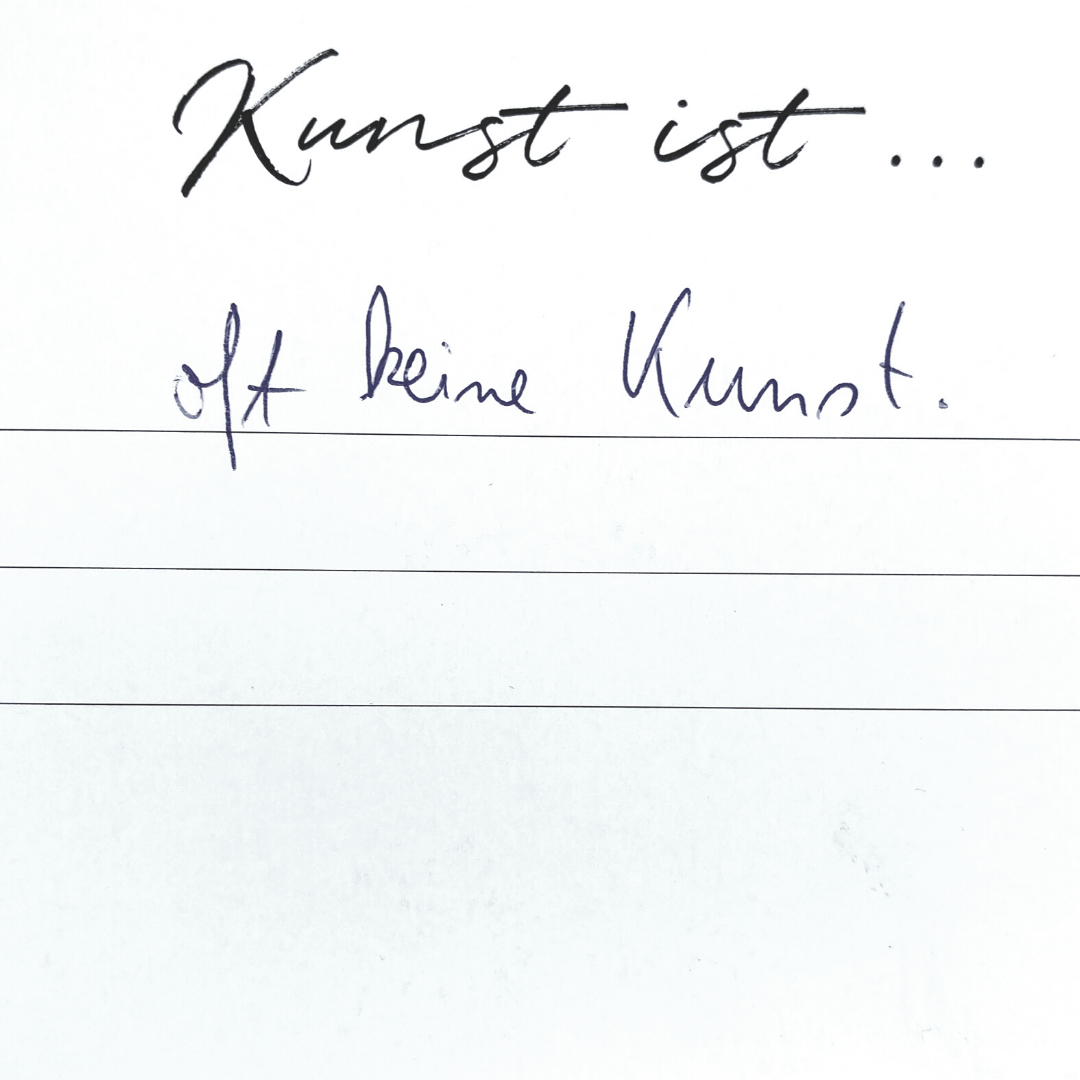 Kunst ist ...
oft keine Kunst.